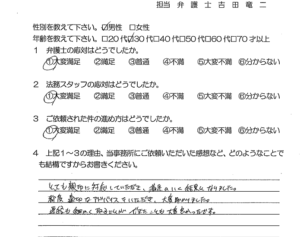 担当 弁護士 吉田竜二
性別を教えて下さい。☑男性 □女性
年齢を教えて下さい。□20代☑30代□40代□50代□60代□70才以上
1 弁護士の応対はどうでしたか。
①大変満足 ②満足 ③普通 ④不満 ⑤大変不満 ⑥分からない
2 法務スタッフの応対はどうでしたか。
①大変満足 ②満足 ③普通 ④不満 ⑤大変不満 ⑥分からない
3 ご依頼された件の進め方はどうでしたか。
①大変満足 ②満足 ③普通 ④不満 ⑤大変不満 ⑥分からない
4 上記1～3の理由、当事務所にご依頼いただいた感想など、どのようなことで
も結構ですからお書きください。
とても親切に対応していただき、満足のいく結果になりました。